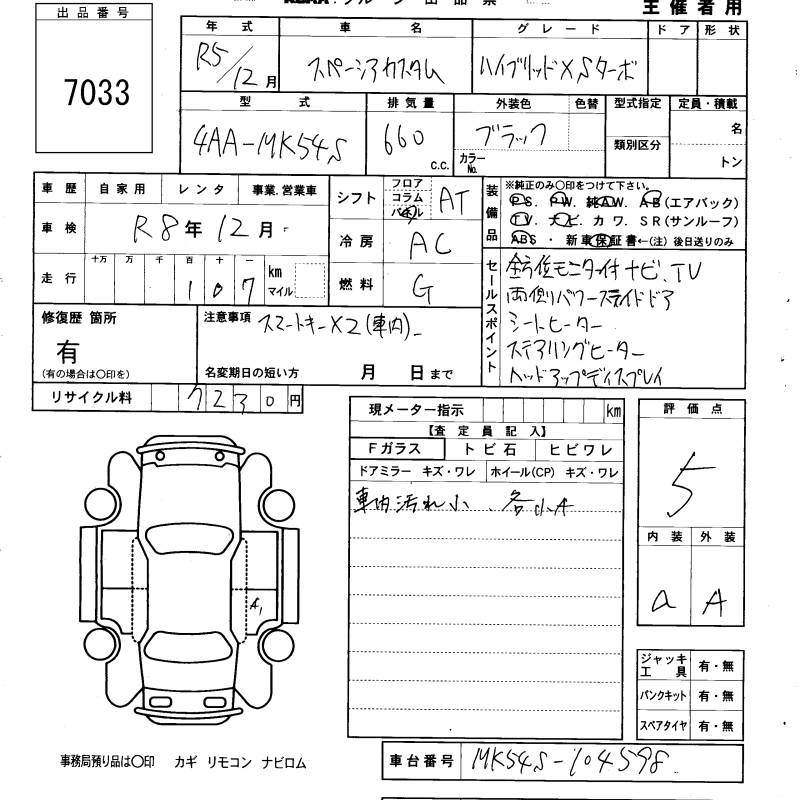 出品番号
7033
主催者用
年式 車名 グレード ドア 形状
R5/12月 スペーシアカスタム ハイブリッドXSターボ
型式 排気量 外装色 色替 型式指定 定員・積載
4AA-MK54S 660 c.c. ブラック カラーNo. 類別区分 名 トン
車歴 自家用 レンタ 事業.営業車
車検 R8年12月
走行 十万 万 千 百 十 一 km マイル
107
シフト フロア コラム パネル AT
冷房 AC
燃料 G
装備品 ※純正のみ〇印をつけて下さい。
PS. PW. 純AW. AB(エアバック)
TV. ナビ. カワ. SR(サンルーフ)
ABS ・ 新車保証書←(注) 後日送りのみ
セールスポイント
全方位モニター付ナビ、TV
両側パワースライドドア
シートヒーター
ステアリングヒーター
ヘッドアップディスプレイ
修復歴 箇所
有
(有の場合は〇印を)
注意事項 スマートキーX2(車内)
名変期日の短い方 月 日まで
リサイクル料 7230円
現メーター指示 km
【査定員記入】
Fガラス トビ石 ヒビワレ
ドアミラー キズ・ワレ ホイール(CP) キズ・ワレ
車内汚れ小、各小A
評価点
5
内装 外装
a A
A1
ジャッキ工具 有・無
パンクキット 有・無
スペアタイヤ 有・無
事務局預り品は〇印 カギ リモコン ナビロム
車台番号 MK54S-104598